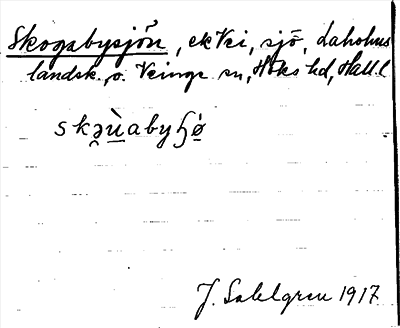 Skogabysjön, ek Vei, sjö, Laholms
landsk., o. Veinge sn, Höks hd, Hall. l
skə̯ùabyɧǿ
J. Sahlgren 1917